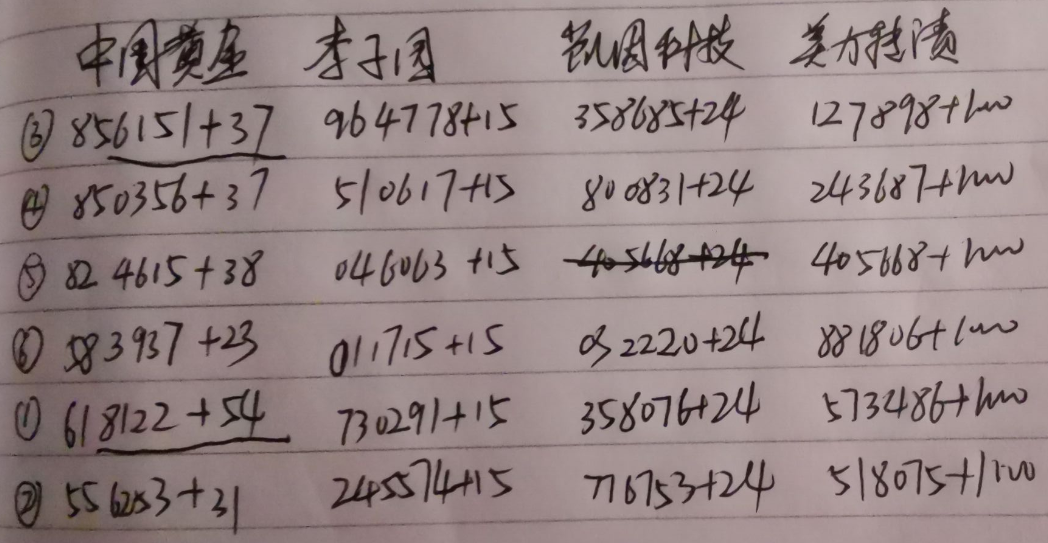 中国黄金 李子园 凯因科技 美力转债
③ 856151+37 964778+15 358685+24 127898+1000
④ 850356+37 510617+15 800831+24 243687+1000
⑤ 824615+38 046063+15 405668+24 405668+1000
⑥ 583937+23 011715+15 032220+24 881806+1000
① 618122+54 730291+15 358076+24 573486+1000
② 556253+31 245574+15 776753+24 518075+1000